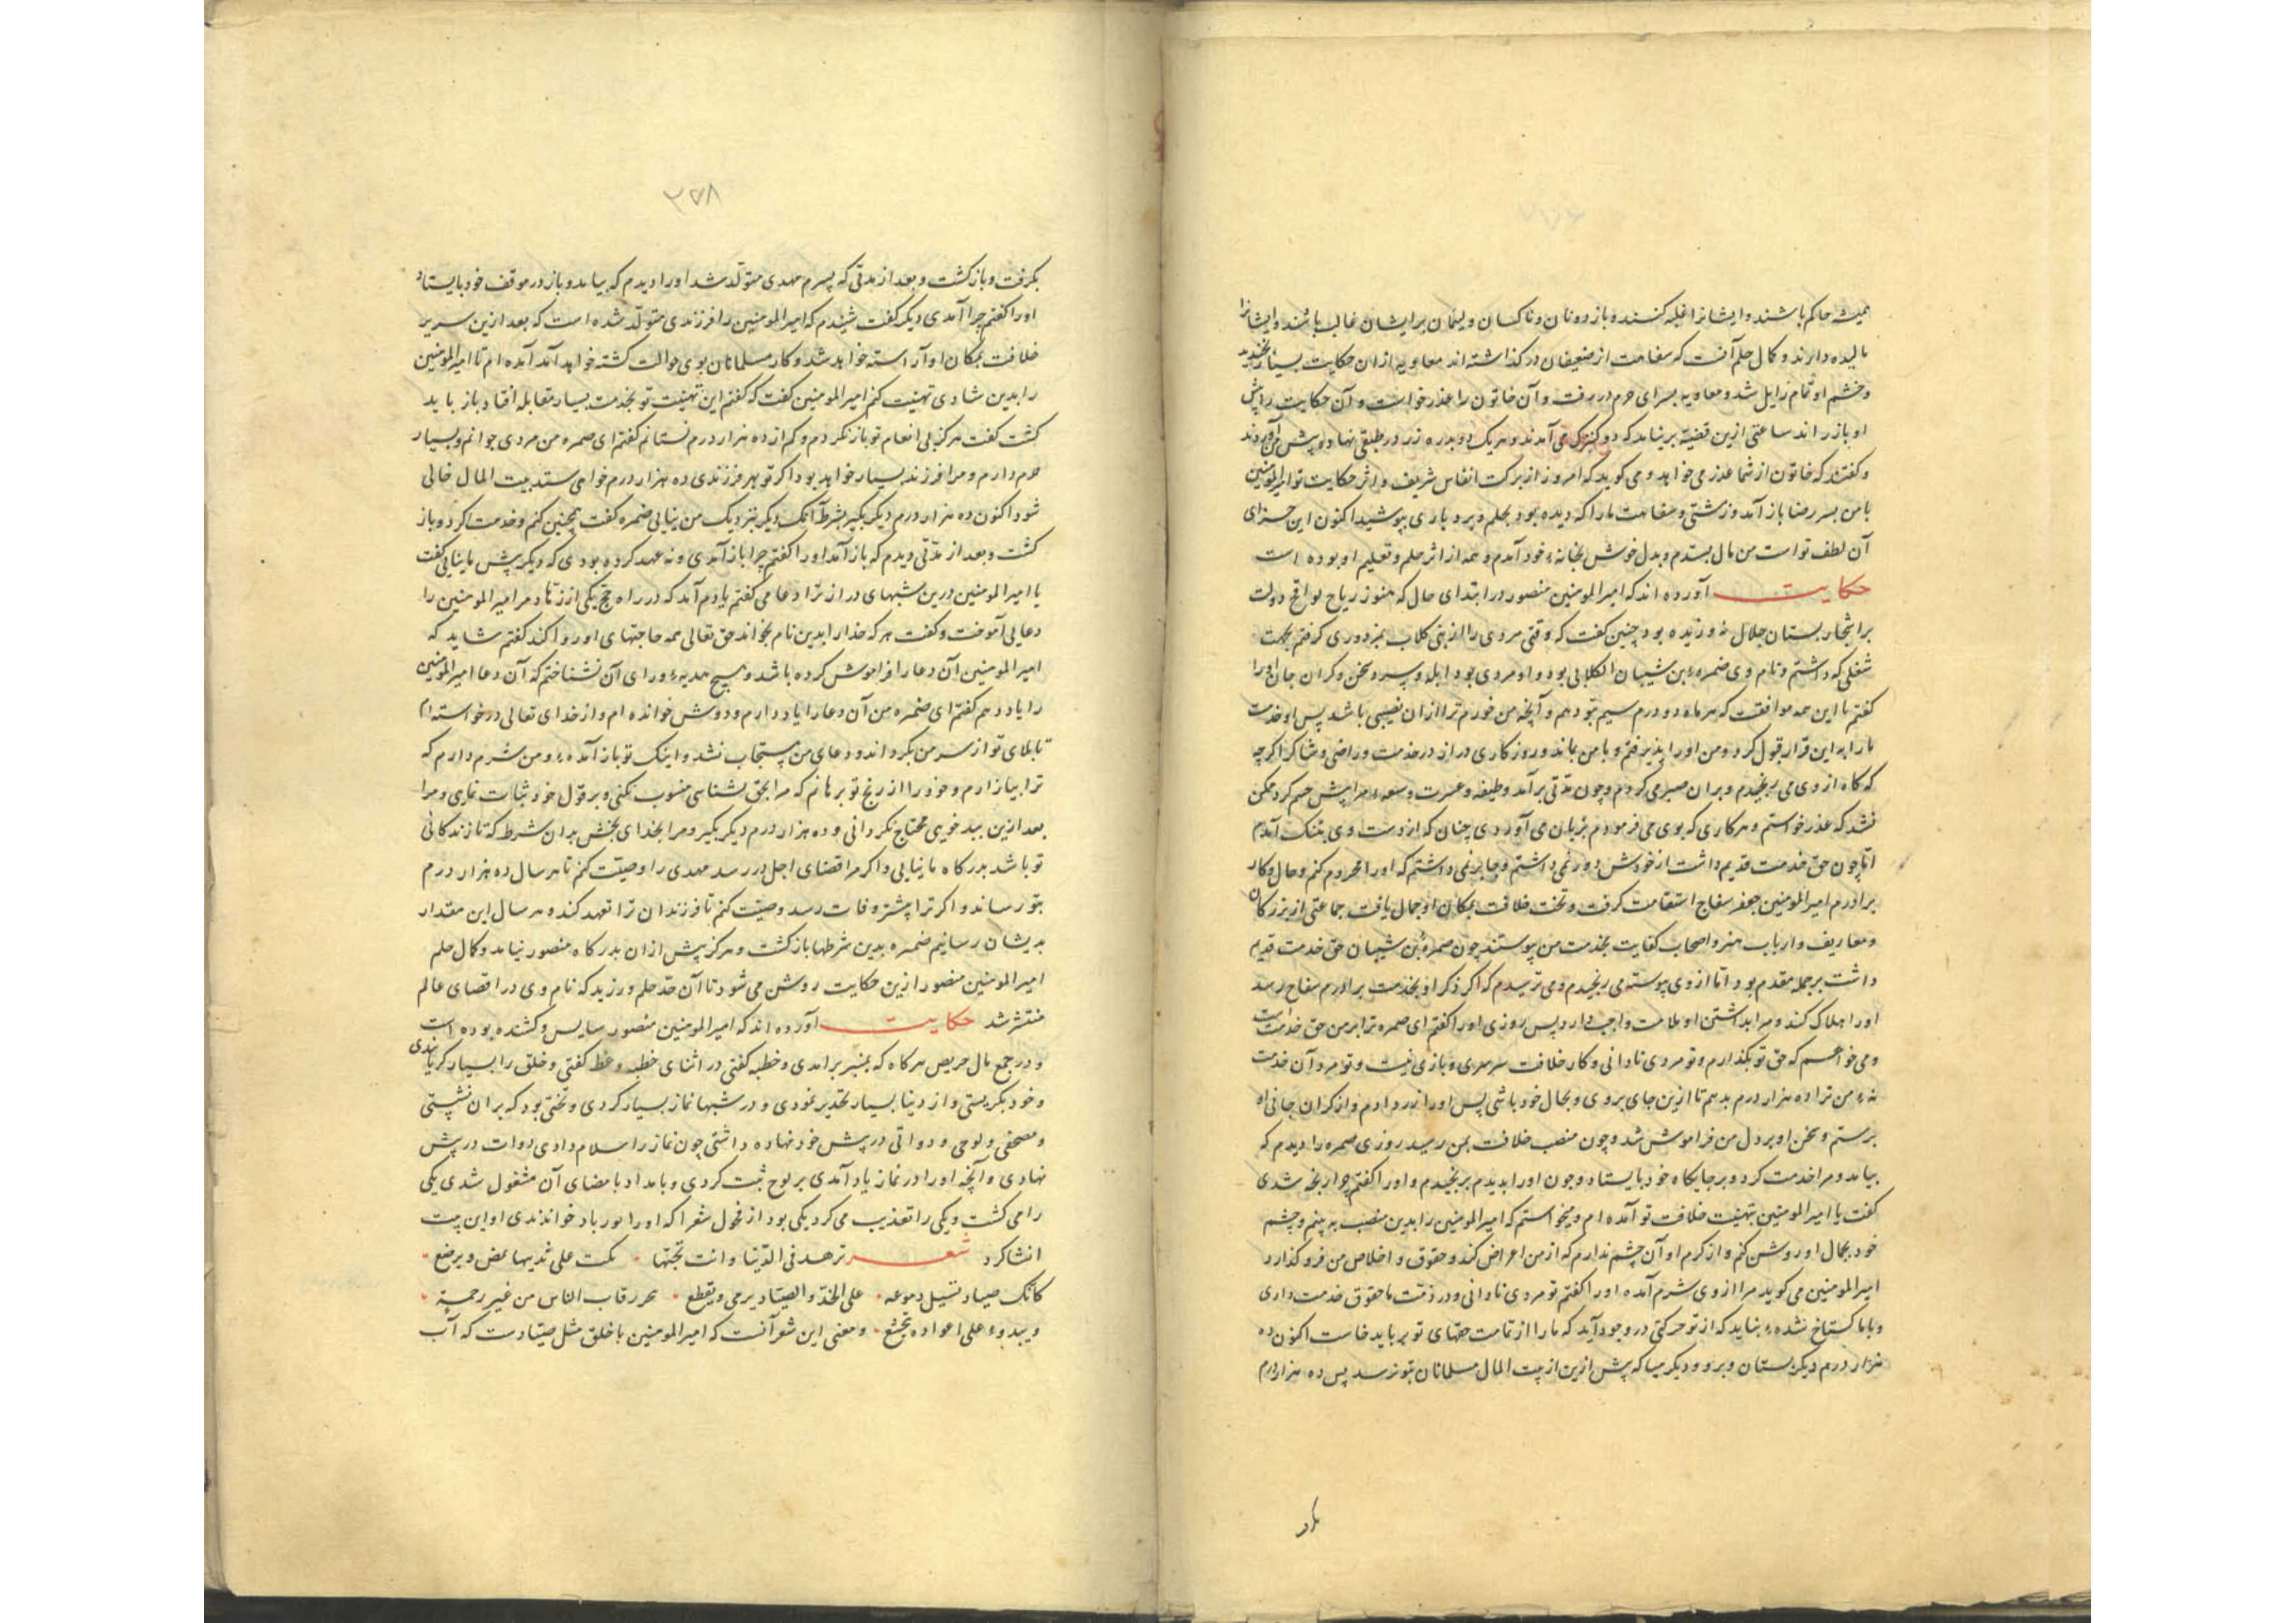 همیشه حاکم باشند و ایشانرا غلبه کنند و باز دونان و ناکسان و لیمان بر ایشان غالب باشند و ایشانرا
مالیده دارند و کمال حلم آنست که سفاهت از ضعیفان درگذاشته اند معاویه ازان حکایت بسیار بخندید
و خشم او تمام زایل شد و معاویه بسرای حرم در رفت و آن خاتون را عذر خواست و آن حکایت را پیش
او باز راند ساعتی ازین قضیه بر نیامد که دو کنیزک می آمدند و هر یک دو بدره زر در طبقی نهاده و پیش من آوردند
و گفتند که خاتون از شما عذر می خواهد و می گوید که امروز از برکت انفاس شریف و اثر حکایت تو امیرالمومنین
با من بسر رضا باز آمد و زشتی و سفاهت ما را که دیده بود بحلم و بردباری بپوشید اکنون این جزای
آن لطف تو است من مال بستدم و بدل خوش بخانهٔ خود آمدم و همه از اثر حلم و تعلیم او بوده است
حکایت آورده اند که امیرالمومنین منصور در ابتدای حال که هنوز ریاح لواقح دولت
بر اشجار بستان جلال نه وزیده بود چنین گفت که وقتی مردی را از بنی کلاب بمزدوری گرفتم بجهت
شغلی که داشتم و نام وی ضمرهٔ بن شیبان الکلابی بود و او مردی بود ابله و سرد سخن و گران جان او را
گفتم با این همه موافقت که هر ماه دو درم سیم بتو دهم و آنچه من خورم ترا ازان نصیبی باشد پس او خدمت
ما را به این قرار قبول کرد و من او را پذیرفتم و با من بماند و روزگاری دراز در خدمت و راضی و شاکر اگرچه
که گاه از وی می رنجیدم و بران صبر می کردم و چون مدتی برآمد وظیفه و عسرت و سعه مرا پیش خصم کرد ممکن
نشد که عذر خواستم و هر کاری که بوی می فرمودم بزبان می آوردی چنان که از دست وی بتنک آمدم
اما چون حق خدمت قدیم داشت از خودش دور نمی داشتم و جایز نمی داشتم که او را محروم کنم و حال و کار
برادرم امیرالمومنین جعفر سفاح استقامت گرفت و تخت خلافت بمکان او جمال یافت جماعتی از بزرگان
و معاریف و ارباب هنر و اصحاب کفایت بخدمت من پیوستند چون ضمرهٔ بن شیبان حق خدمت قدیم
داشت بر جمله مقدم بود اما از وی پیوسته می رنجیدم و می ترسیدم که اگر ذکر او بخدمت برادرم سفاح رسد
او را هلاک کند و مرا بداشتن او ملامت واجب دارد پس روزی او را گفتم ای ضمره ترا بر من حق خدمت است
و می خواهم که حق تو بگذارم و تو مردی نادانی و کار خلافت سرسری و بازی نیست و تو مرد آن خدمت
نهٔ من ترا ده هزار درم بدهم تا ازین جای بروی و بحال خود باشی پس او را زر دادم و از گران جانی او
برستم و سخن او بر دل من فراموش شد و چون منصب خلافت بمن رسید روزی ضمره را دیدم که
بیامد و مرا خدمت کرد و بر جایگاه خود بایستاد و چون او را بدیدم برنجیدم و او را گفتم چرا رنجه شدی
گفت یا امیرالمومنین بتهنیت خلافت تو آمده ام و میخواستم که امیرالمومنین را بدین منصب به بینم و چشم
خود بجمال او روشن کنم و از کرم او آن چشم ندارم که از من اعراض کند و حقوق و اخلاص من فرو گذارد
امیرالمومنین می گوید مرا از وی شرم آمد او را گفتم تو مردی نادانی و در ذمت ما حقوق خدمت داری
و با ما گستاخ شدهٔ نباید که از تو حرکتی در وجود آید که ما را از تمامت حقهای تو بر باید خاست اکنون ده
هزار درم دیگر بستان و برو و دیگر میا که پیش ازین از بیت المال مسلمانان بتو نرسد پس ده هزار درم
۳۵۸
بگرفت و باز گشت و بعد از مدتی که پسرم مهدی متولد شد او را دیدم که بیامد و باز در موقف خود بایستاد
او را گفتم چرا آمدی دیگر گفت شنیدم که امیرالمومنین را فرزندی متولد شده است که بعد ازین سریر
خلافت بمکان او آراسته خواهد شد و کار مسلمانان بوی حوالت گشته خواهد آمد آمده ام تا امیرالمومنین
را بدین شادی تهنیت کنم امیرالمومنین گفت که گفتم این تهنیت تو بخدمت بسیار مقابله افتاد باز باید
گشت گفت هرگز بی انعام تو باز نگردم و کم از ده هزار درم نستانم گفتم ای ضمره من مردی جوانم و بسیار
حرم دارم و مرا فرزند بسیار خواهد بود اگر تو بهر فرزندی ده هزار درم خواهی ستد بیت المال خالی
شود اکنون ده هزار درم دیگر بگیر بشرط آنک دیگر بنزدیک من نیایی ضمره گفت همچنین کنم و خدمت کرد و باز
گشت و بعد از مدتی دیدم که باز آمد او را گفتم چرا باز آمدی و نه عهد کرده بودی که دیگر پیش ما نیایی گفت
یا امیرالمومنین درین شبهای دراز ترا دعا می گفتم یادم آمد که در راه حج یکی از زهاد مر امیرالمومنین را
دعایی آموخت و گفت هر که خدا را بدین نام بخواند حق تعالی همه حاجتهای او روا کند گفتم شاید که
امیرالمومنین آن دعا را فراموش کرده باشد و هیچ هدیهٔ ورای آن نشناختم که آن دعا امیرالمومنین
را یاد دهم گفتم ای ضمره من آن دعا را یاد دارم و دوش خوانده ام و از خدای تعالی درخواسته ام
تا بلای تو از سر من بگرداند و دعای من مستجاب نشد و اینک تو باز آمدهٔ و من شرم دارم که
ترا بیازارم و خود را از رنج تو برهانم که مرا بحق نشناسی منسوب نکنی و بر قول خود ثبات نمایی و مرا
بعد ازین ببد خویی محتاج نگردانی و ده هزار درم دیگر بگیر و مرا بخدای بخش بدان شرط که تا زندگانی
تو باشد بدرگاه ما نیایی و اگر مرا قضای اجل در رسد مهدی را وصیت کنم تا هر سال ده هزار درم
بتو رساند و اگر ترا پیشتر وفات رسد وصیت کنم تا فرزندان ترا تعهد کند و هر سال این مقدار
بدیشان رسانیم ضمره بدین شرطها باز گشت و هرگز پیش ازان بدرگاه منصور نیامد و کمال حلم
امیرالمومنین منصور ازین حکایت روشن می شود تا آن حد حلم ورزید که نام وی در اقصای عالم
منتشر شد حکایت آورده اند که امیرالمومنین منصور سایس و کشنده بوده است
و در جمع مال حریص هرگاه که بمنبر برآمدی و خطبه گفتی در اثنای خطبه وعظ گفتی و خلق را بسیار گریانیدی
و خود بگریستی و از دنیا بسیار تحذیر نمودی و در شبها نماز بسیار کردی و تختی بود که بران نشستی
و مصحفی و لوحی و دواتی در پیش خود نهاده داشتی چون نماز را سلام دادی دوات در پیش
نهادی و آنچه او را در نماز یاد آمدی بر لوح ثبت کردی و بامداد بامضای آن مشغول شدی یکی
را می کشت و یکی را تعذیب می کرد یکی بود از فحول شعرا که او را خواندندی او این بیت
انشا کرد شعر تزهد فی الدنیا و انت تحبها علی ثدیها و یرضع
کانک صیاد تسیل دموعه علی الخد و الصیاد یرمی و یقطع رقاب الناس من غیر رحمة
علی اعواده و معنی این شعر آنست که امیرالمومنین با خلق مثل صیادست که آب